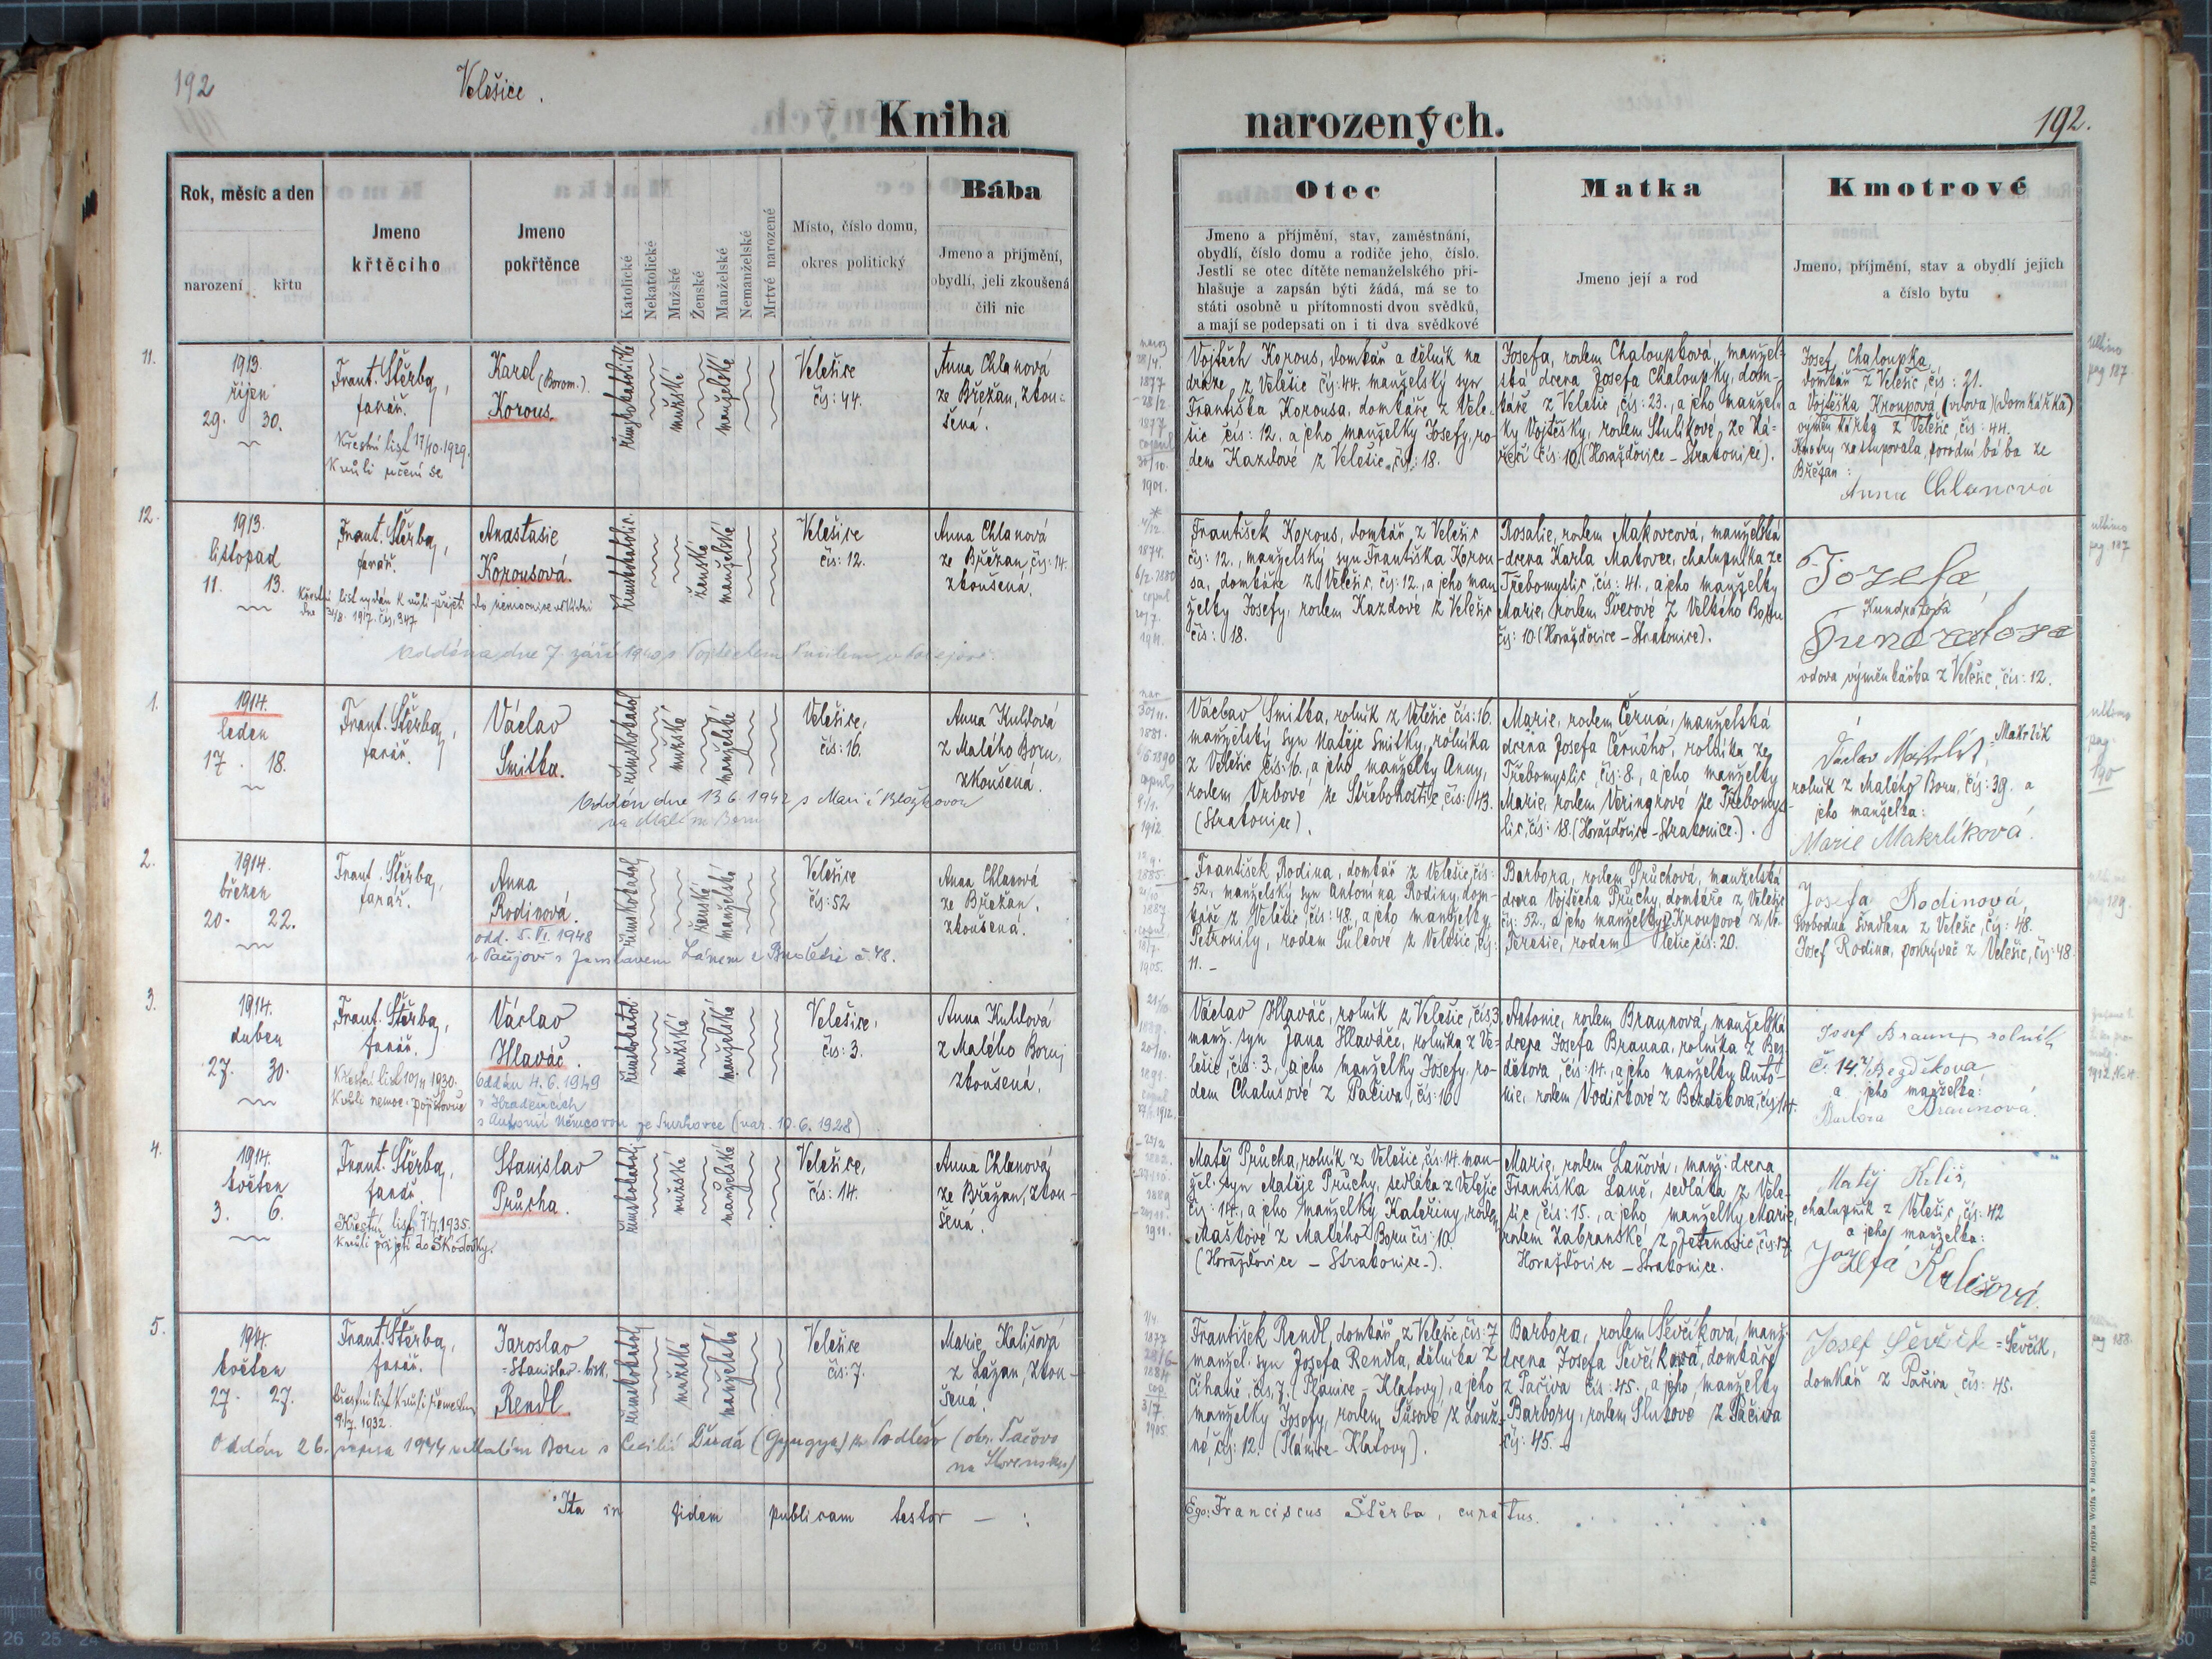 192
Velešice.
Kniha
narozených.
192.
Rok, měsíc a den
narození
křtu
Jmeno
křtěcího
Jmeno
pokřtěnce
Katolické
Nekatolické
Mužské
Ženské
Manželské
Nemanželské
Mrtvé narozené
Místo, číslo domu,
okres politický
Bába
Jmeno a příjmění,
obydlí, jeli zkoušená
čili nic
Otec
Jmeno a příjmění, stav, zaměstnání,
obydlí, číslo domu a rodiče jeho, číslo.
Jestli se otec dítěte nemanželského při-
hlašuje a zapsán býti žádá, má se to
státi osobně u přítomnosti dvou svědků,
a mají se podepsati on i ti dva svědkové
Matka
Jmeno její a rod
Kmotrové
Jmeno, příjmění, stav a obydlí jejich
a číslo bytu
11.
1913.
říjen
29. 30.
Frant. Štěrba,
farář.
Křestní list 17/10.1929.
kvůli učení se.
Karel (Borom.).
Korous.
římskokatolické
mužské
manželské
Velešice
čís: 44.
Anna Chlanová
ze Břežan, zkou-
šená.
Vojtěch Korous, domkář a dělník na
dráze, z Velešic čís: 44. manželský syn
Františka Korousa, domkáře z Vele-
šic čís: 12. a jeho manželky Josefy, ro-
dem Kazdové z Velešic, čís: 18.
Josefa, rodem Chaloupková, manžel-
ská dcera Josefa Chaloupky, dom-
káře z Velešic, čís: 23., a jeho manžel-
ky Vojtěšky, rodem Stulíkové, ze Ka-
čís: 10. (Horažďovice – Strakonice).
Josef Chaloupka,
domkář z Velešic, čís: 21.
a Vojtěška Kroupová (vdova) (domkářka)
výměnkářka z Velešic, čís: 44.
Kmotry zastupovala, porodní bába ze
Břežan:
Anna Chlanová
ultimo
pag 187
12.
1913.
listopad
11. 13.
Frant. Štěrba,
farář.
Křestní list vydán kvůli přijetí do nemocnice
dne 1917. čís. 347
Anastasie
Korousová.
římskokatolic.
ženské
manželské
Velešice
čís: 12.
Anna Chlanová
ze Břežan, čís: 14.
zkoušená.
Oddána dne 7. září 1940 s Vojtěchem
František Korous, domkář z Velešic
čís: 12., manželský syn Františka Korou-
sa, domkáře z Velešic, čís: 12., a jeho man-
želky Josefy, rodem Kazdové z Velešic
čís: 18.
Rosalie, rodem Makovcová, manželská
dcera Karla Makovce, chalupníka ze
Třebomyslic, čís: 41., a jeho manželky
Marie, rodem Švecové z Velkého Boru
čís: 10 (Horažďovice – Strakonice).
Josefa
Kundratová
vdova výměnkářka z Velešic, čís: 12.
1.
1914.
leden
17. 18.
Frant. Štěrba,
farář.
Václav
Smitka.
římskokatol
mužské
manželské
Velešice,
čís: 16.
Anna Kuldová
z Malého Boru,
zkoušená.
Oddán dne 13 6. 1942 s Marií Blažkovou
na Malém Boru
Václav Smitka, rolník z Velešic čís: 16.
manželský syn Matěje Smitky, rolníka
z Velešic čís: 16., a jeho manželky Anny,
rodem Vrbové ze Střebohostic, čís: 43.
(Strakonice).
Marie, rodem Černá, manželská
dcera Josefa Černého, rolníka ze
Třebomyslic, čís: 8., a jeho manželky
Marie, rodem Veringrové ze Třebomys-
lic, čís: 18. (Horažďovice – Strakonice.).
Václav = Makrlík
rolník z Malého Boru, čís: 39. a
jeho manželka:
Marie Makrlíková.
ultimo
pag.
190
2.
1914.
březen
20. 22.
Frant. Štěrba,
farář.
Anna
Rodinová.
odd. 5. VI. 1948
římskokatol
ženské
manželské
Velešice
čís: 52
Anna Chlanová
ze Břežan,
zkoušená.
František Rodina, domkář z Velešic, čís:
52., manželský syn Antonína Rodiny, dom-
káře z Velešic čís: 48. a jeho manželky
Petronily, rodem Šulcové z Velešic, čís:
11. –
Barbora, rodem Průchová, manželská
dcera Vojtěcha Průchy, domkáře z Velešic
čís: 52., a jeho manželky Kroupové z Ve-
Terezie, rodem lešic, čís: 20.
Josefa Rodinová,
svobodná švadlena z Velešic, čís: 48.
Josef Rodina, pokrývač z Velešic, čís: 48
3.
1914.
duben
27. 30.
Frant. Štěrba,
farář.
Křestní list 10/11 1930.
Kvůli nemoc. pojišťovně
Václav
Hlaváč.
Oddán 4. 6. 1949
v Hradešicích
s Antonií Němcovou ze Smrkovce (nar. 10. 6. 1928)
římskokatol
mužské
manželské
Velešice,
čís: 3.
Anna Kuldová
z Malého Boru,
zkoušená.
Václav Hlaváč, rolník z Velešic, čís 3
manž. syn Jana Hlaváče, rolníka z Ve-
lešic, čís: 3., a jeho manželky Josefy, ro-
dem Chalušové z Pačiva, čís: 16
Antonie, rodem Braunová, manželská
dcera Josefa Brauna, rolníka z Bez-
děkova, čís: 14. a jeho manželky Anto-
nie, rodem Vodičkové z Bezděkova, čís: 14.
Josef Braun, rolník
č. 14. z Bezděkova
a jeho manželka:
Barbora Braunová.
4.
1914.
květen
3. 6.
Frant. Štěrba,
farář.
Křestní list 7/7. 1935.
kvůli přijetí do Škodovky.
Stanislav
Průcha.
římskokatol
mužské
manželské
Velešice,
čís: 14.
Anna Chlanová
ze Břežan, zkou-
šená.
Matěj Průcha, rolník z Velešic, čís: 14. man-
žel. syn Matěje Průchy, sedláka z Velešic
čís: 14., a jeho manželky Kateřiny, rodem
Maškové z Malého Boru čís: 10.
(Horažďovice – Strakonice.).
Marie, rodem Laňová, manž. dcera
Františka Laně, sedláka z Vele-
šic, čís: 15., a jeho manželky Marie,
rodem Zabranské z Jetenovic, čís: 17.
Horažďovice – Strakonice.
Matěj Kališ,
chalupník z Velešic, čís: 42
a jeho manželka:
Josefa Kališová.
5.
1914.
květen
27. 27.
Frant. Štěrba,
farář.
Křestní list kvůli řemeslu
1932.
Jaroslav
= Stanislav
Rendl
římskokatol
mužské
manželské
Velešice
čís: 7.
Marie Kališová
z Lažan, zkou-
šená.
Oddán 26. srpna 1944 v Malém Boru s Cecilií
na Slovensku)
František Rendl, domkář z Velešic, čís: 7
manžel. syn Josefa Rendla, dělníka z
Číhaně, čís, 7. (Plánice – Klatovy), a jeho
manželky Josefy, rodem Susové z Louž-
né, čís: 12. (Plánice – Klatovy).
Barbora, rodem Ševčíková, manž.
dcera Josefa Ševčíka, domkáře
z Pačiva čís: 45., a jeho manželky
Barbory, rodem Slukové z Pačiva
čís: 45. –
Josef Ševčík = Ševčík,
domkář z Pačiva, čís: 45.
pag 188.
Ita in fidem publicam testor – :
Ego: Franciscus Štěrba, curatus.
Tiskem Hynka Wolfa v Budějovicích